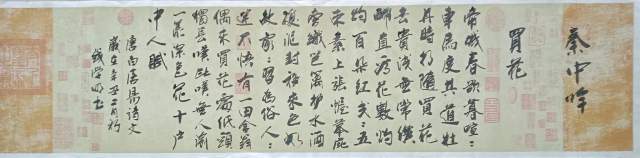 秦中吟
買花
帝城春欲暮喧喧
車馬度共道牡
丹時相隨買花
去貴賤無常價
酬直看花數灼
灼百朵紅戔戔五
束素上張幄幕庇
旁織笆籬護水洒
復泥封移來色如
故家家習為俗人人
迷不悟有一田舍翁
偶來買花處低頭
獨長嘆此嘆無人喻
一叢深色花十戶
中人賦
唐白居易詩文
歲在辛丑二月